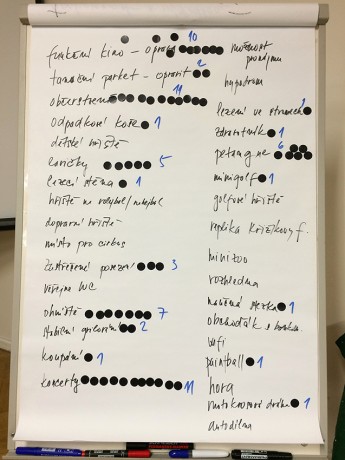 funkční kino - oprava 10
taneční parket - opravit 2
občerstvení 11
odpadkové koše 1
dětské hřiště
lavičky 5
lezecí stěna 1
hřiště na volejbal / nohejbal
dopravní hřiště
místo pro cirkus
zastřešené posezení 3
veřejná WC
ohniště 7
stabilní grilování 2
koupání 1
koncerty 11
možnost pronájmu
lezení ve stromech 1
zdravotník 1
petangue 6
minigolf 1
golfové hřiště
replika Křižíkovy f.
minizoo
rozhledna
naučná stezka 1
wifi
paintball 1
hora
motokrosová dráha 1
autodílna